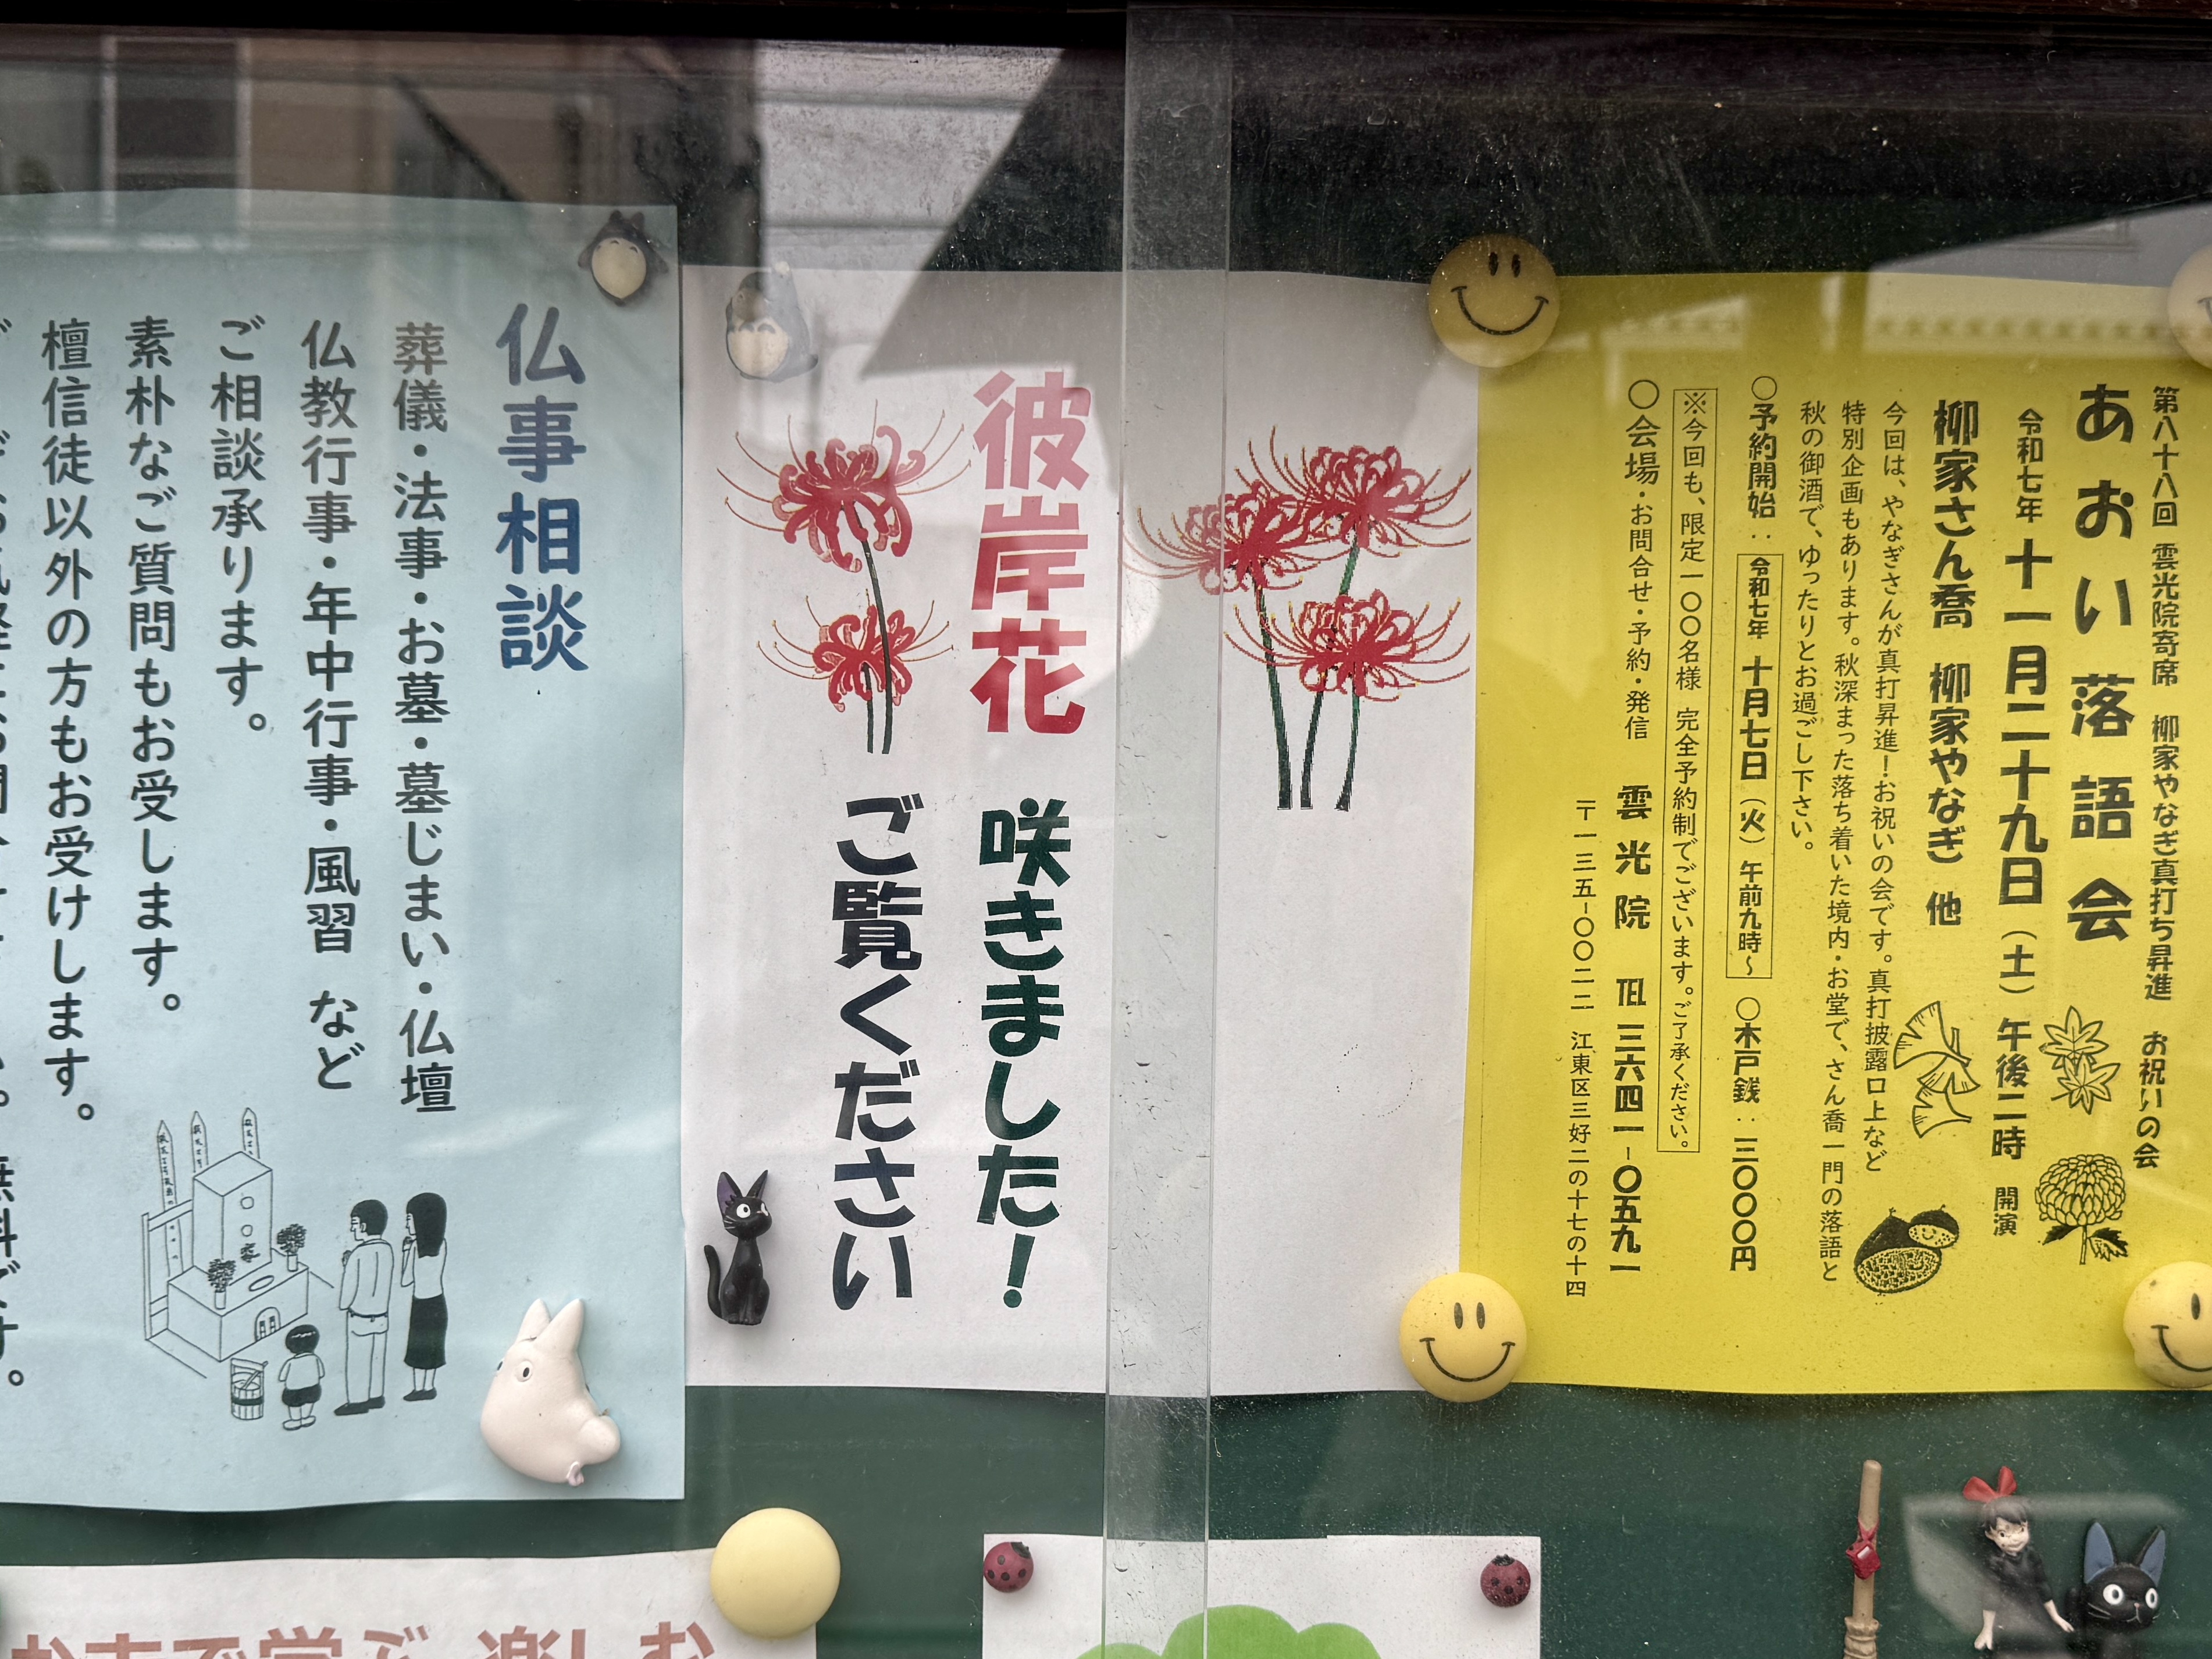 第八十八回 雲光院寄席 柳家やなぎ真打ち昇進 お祝いの会
あおい落語会
令和七年 十一月二十九日(土) 午後二時 開演
柳家さん喬 柳家やなぎ 他
今回は、やなぎさんが真打昇進!お祝いの会です。真打披露口上など
特別企画もあります。秋深まった落ち着いた境内・お堂で、さん喬一門の落語と
秋の御酒で、ゆったりとお過ごし下さい。
〇予約開始: 令和七年 十月七日(火)午前九時~ 〇木戸銭:三〇〇〇円
※今回も、限定一〇〇名様 完全予約制でございます。ご了承ください。
〇会場・お問合せ・予約・発信 雲光院 ℡ 三六四一-〇五九一
〒一三五-〇〇二二 江東区三好二の十七の十四
彼岸花 咲きました!
ご覧ください
仏事相談
葬儀・法事・お墓・墓じまい・仏壇
仏教行事・年中行事・風習 など
ご相談承ります。
素朴なご質問もお受します。
檀信徒以外の方もお受けします。
家
学ぶ 楽しむ